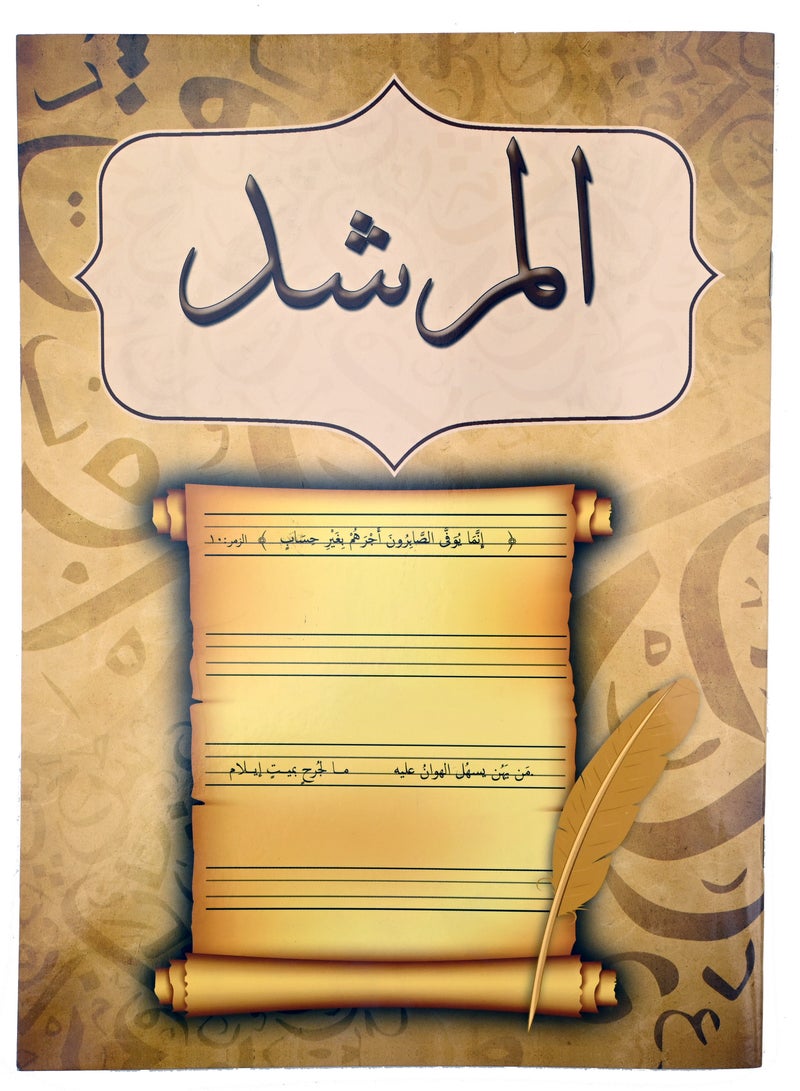 المرشد
﴿ إِنَّمَا يُوَفَّى الصَّابِرُونَ أَجْرَهُمْ بِغَيْرِ حِسَابٍ ﴾ الزمر:١٠
مَن يَهُن يسهُل الهوانُ عليه ما لجُرحٍ بميتٍ إيلام